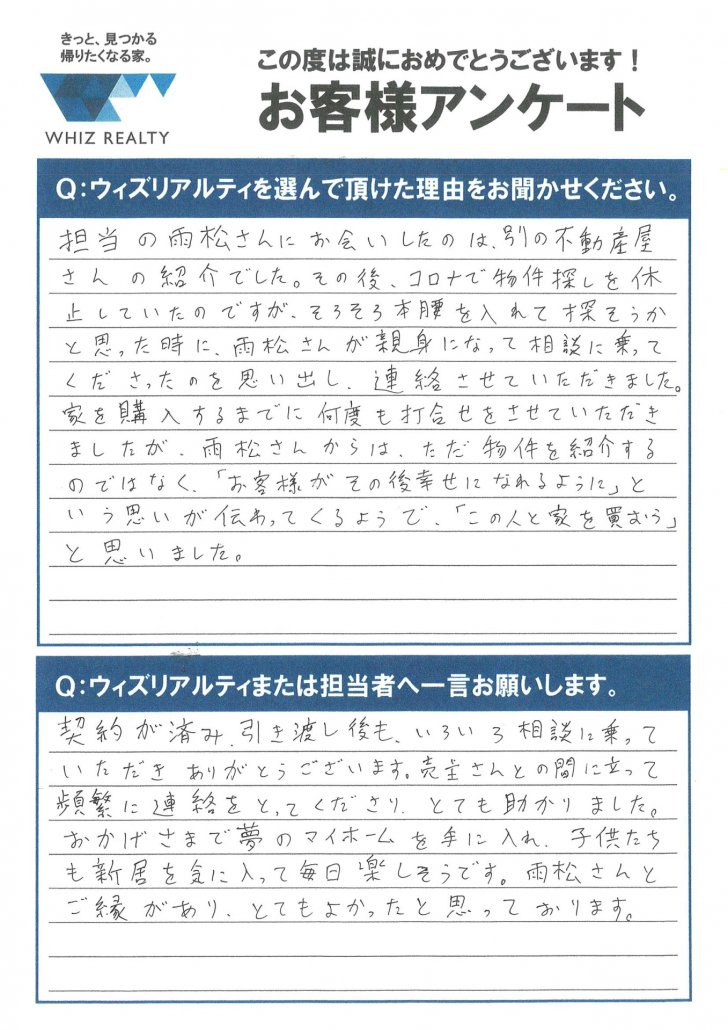 きっと、見つかる
帰りたくなる家。
WHIZ REALTY
この度は誠におめでとうございます！
お客様アンケート
Q：ウィズリアルティを選んで頂けた理由をお聞かせください。
担当の雨松さんにお会いしたのは、別の不動産屋
さんの紹介でした。その後、コロナで物件探しを休
止していたのですが、そろそろ本腰を入れて探そうか
と思った時に、雨松さんが親身になって相談に乗って
くださったのを思い出し、連絡させていただきました。
家を購入するまでに何度も打合せをさせていただき
ましたが、雨松さんからは、ただ物件を紹介する
のではなく、「お客様がその後幸せになれるように」と
いう思いが伝わってくるようで、「この人と家を買おう」
と思いました。
Q：ウィズリアルティまたは担当者へ一言お願いします。
契約が済み、引き渡し後も、いろいろ相談に乗って
いただきありがとうございます。売主さんとの間に立って
頻繁に連絡をとってくださり、とても助かりました。
おかげさまで夢のマイホームを手に入れ、子供たち
も新居を気に入って毎日楽しそうです。雨松さんと
ご縁があり、とてもよかったと思っております。